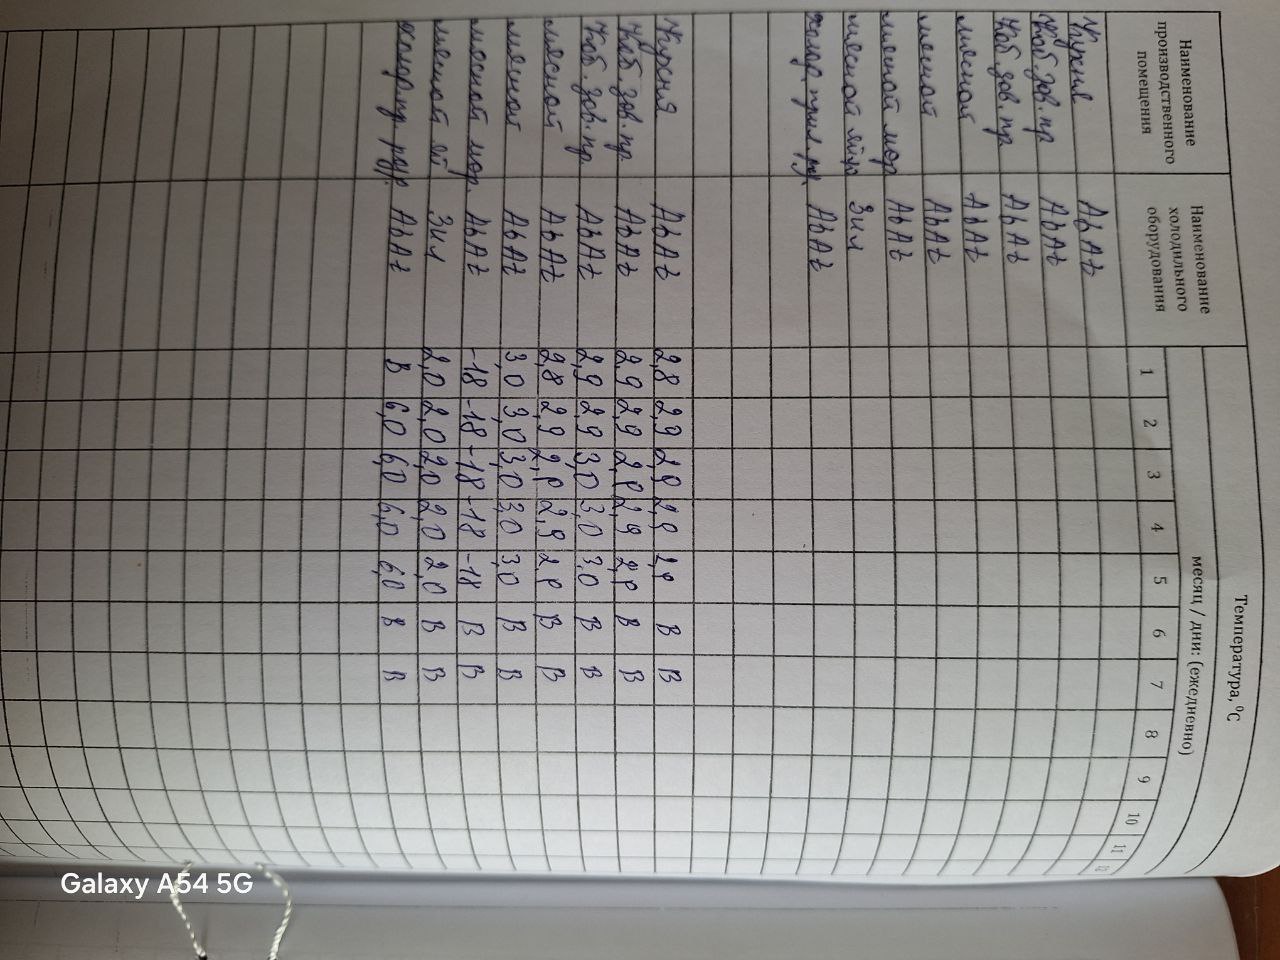 Температура, ⁰С
месяц / дни: (ежедневно)
Наименование производственного помещения
Наименование холодильного оборудования
1 2 3 4 5 6 7 8 9 10 11 12
Кухня Abat
Каб. зав. пр Abat
Каб. зав. пр Abat
мясной Abat
мясной Abat
мясной мор Abat
мясной яйр Зил
Abat
Кухня Abat 2,8 2,9 2,8 2,8 2,8 В В
Каб. зав. пр. Abat 2,9 2,9 2,8 2,9 2,8 В В
Каб. зав. пр. Abat 2,9 2,9 3,0 3,0 3,0 В В
мясной Abat 2,8 2,9 2,8 2,9 2,8 В В
мясной Abat 3,0 3,0 3,0 3,0 3,0 В В
мясной мор. Abat -18 -18 -18 -18 -18 В В
мясной яй Зил 2,0 2,0 2,0 2,0 2,0 В В
Abat В 6,0 6,0 6,0 6,0 В В
Galaxy A54 5G